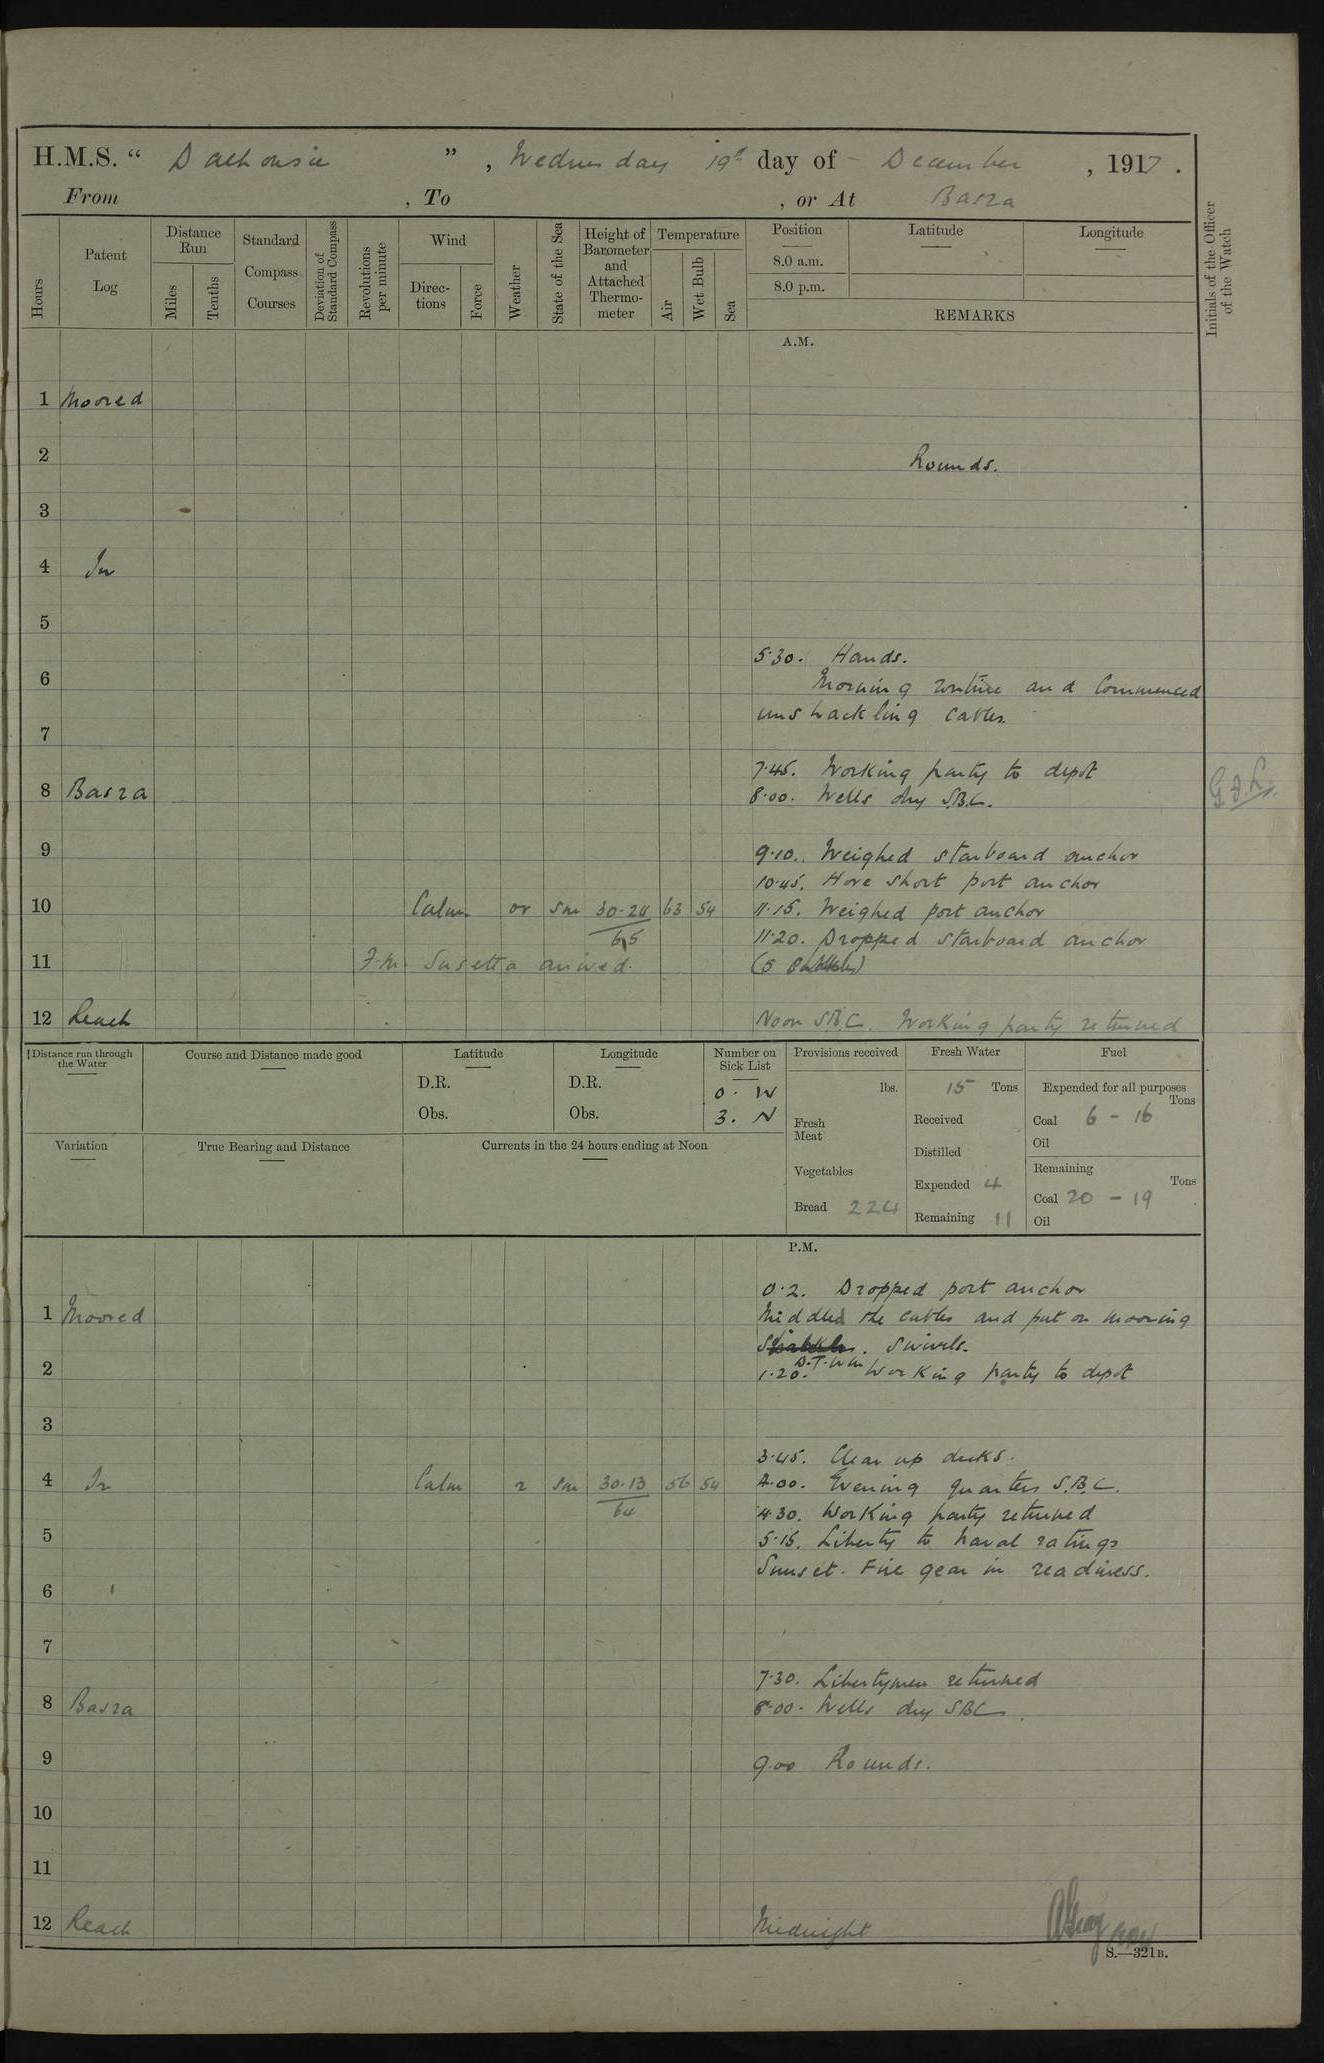 H.M.S. “ Dalhousie ” , Wednesday 19th day of December , 1917 .
From , To , or At Basra
Hours
Patent Log
Distance Run
Miles
Tenths
Standard Compass Courses
Deviation of Standard Compass
Revolutions per minute
Wind
Directions
Force
Weather
State of the Sea
Height of Barometer and Attached Thermometer
Temperature
Air
Wet Bulb
Sea
Position
8.0 a.m.
8.0 p.m.
Latitude
Longitude
REMARKS
Initials of the Officer of the Watch
A.M.
1 Moored
2 Rounds.
3
4 In
5
5.30. Hands.
6 Morning routine and Commenced
unshackling cables.
7
7.45. Working party to depot
8 Basra 8.00. Wells dry S.B.C.
9 9.10. Weighed starboard anchor
10.45. Hove short port anchor
10 Calm or sm 30.24 63 54 11.15. Weighed port anchor
65 11.20. Dropped starboard anchor
11 F.M. Susetta arrived. (5
12 Reach Noon SBC. Working party returned
Distance run through the Water
Course and Distance made good
Latitude
D.R.
Obs.
Longitude
D.R.
Obs.
Number on Sick List
0. W
3. N
Provisions received
lbs.
Fresh Meat
Vegetables
Bread 224
Fresh Water
15 Tons
Received
Distilled
Expended 4
Remaining 11
Fuel
Expended for all purposes
Tons
Coal 6 - 16
Oil
Remaining
Tons
Coal 20 - 19
Oil
Variation
True Bearing and Distance
Currents in the 24 hours ending at Noon
P.M.
0.2. Dropped port anchor
1 Moored Middled the cables and put on mooring
swivels.
2 1.20. Working party to depot
3
3.45. Clear up decks.
4 In Calm r sm 30.13 56 54 4.00. Evening quarters S.B.C.
64 4.30. Working party returned
5 5.15. Liberty to Naval ratings
Sunset. Fire gear in readiness.
6
7
7.30. Libertymen returned
8 Basra 8.00. Wells dry SBC
9 9.00 Rounds.
10
11
12 Reach Midnight
S.—321B.